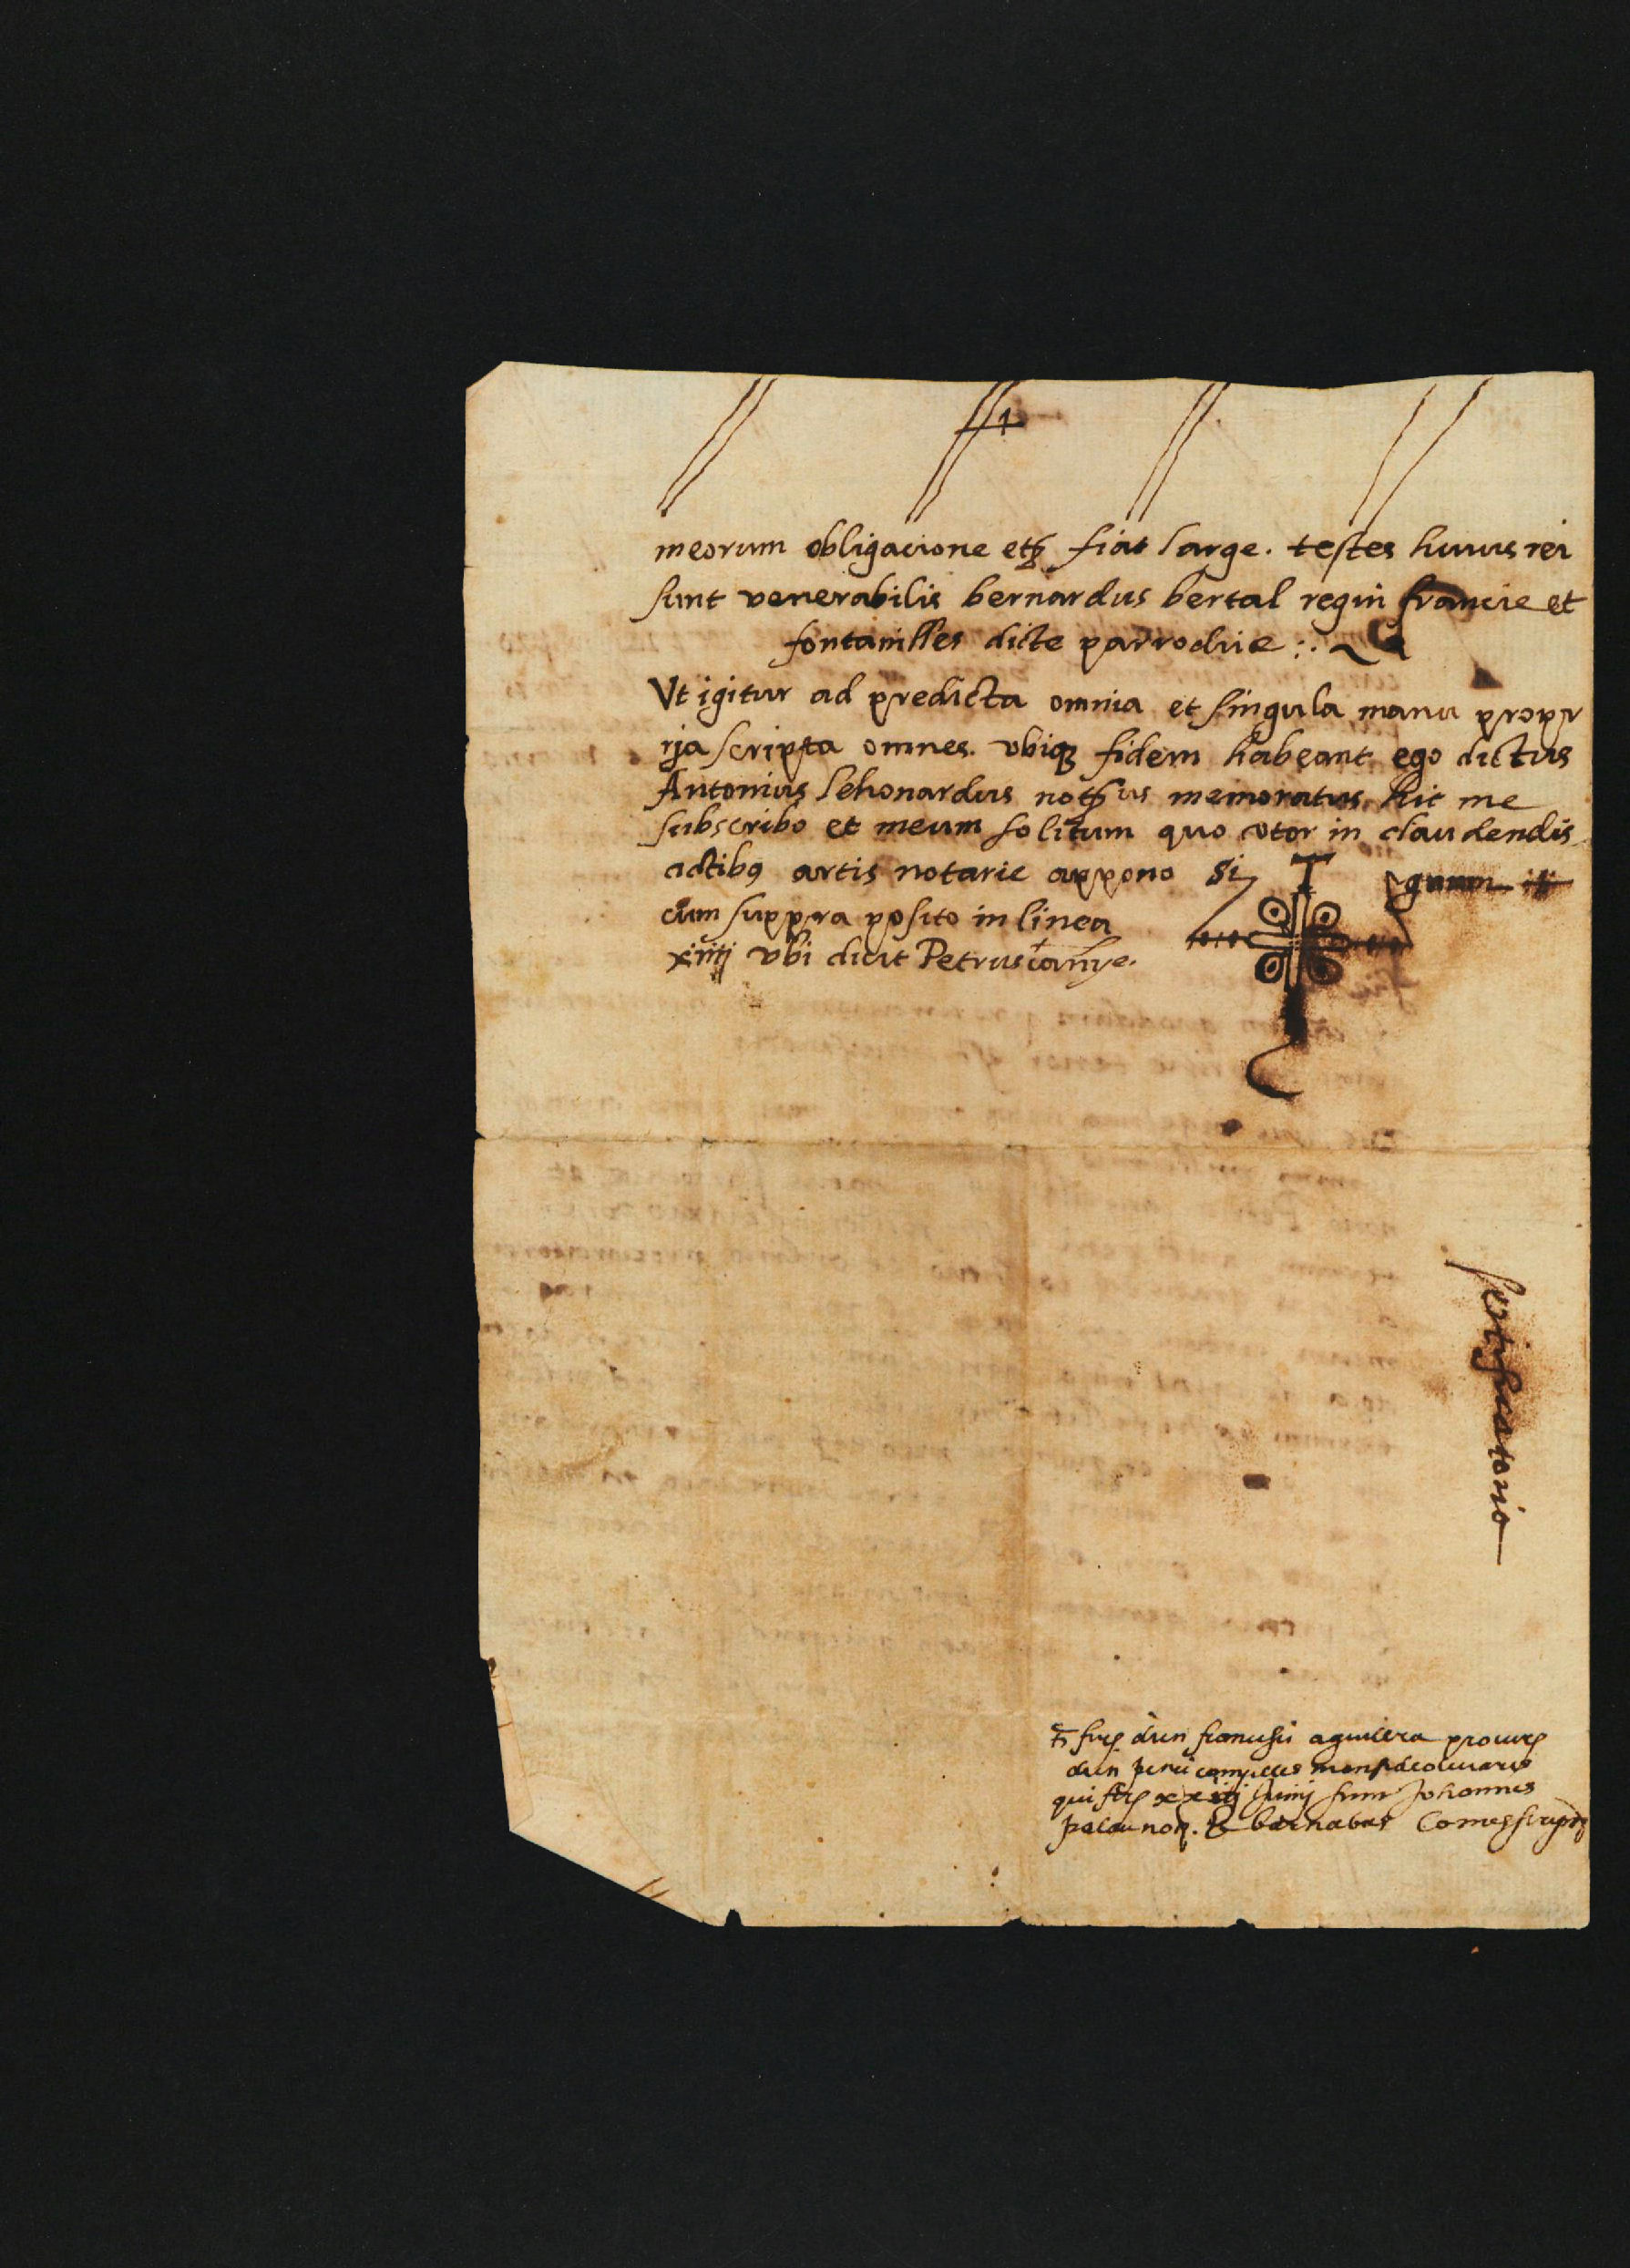 meorum obligacione etꝫ fiat large. testes huius rei
sunt venerabilis bernardus bertal regin francie et
fontanilles dicte parrochie :.
Vt igitur ad predicta omnia et singula manu propr
ria scripta omnes. vbiqꝫ fidem habeant ego dictus
Antonius lehonardus notus memoratus hic me
subscribo et meum solitum quo vtor in claudendis
actibꝰ artis notarie appono Si T gnum
cum suppra posito in linea
xiiij vbi dicit Petrus
sertificatorio
francisci aguilera
qui xxiij Junij sunt Johannes
palau not. & barnabas Comes